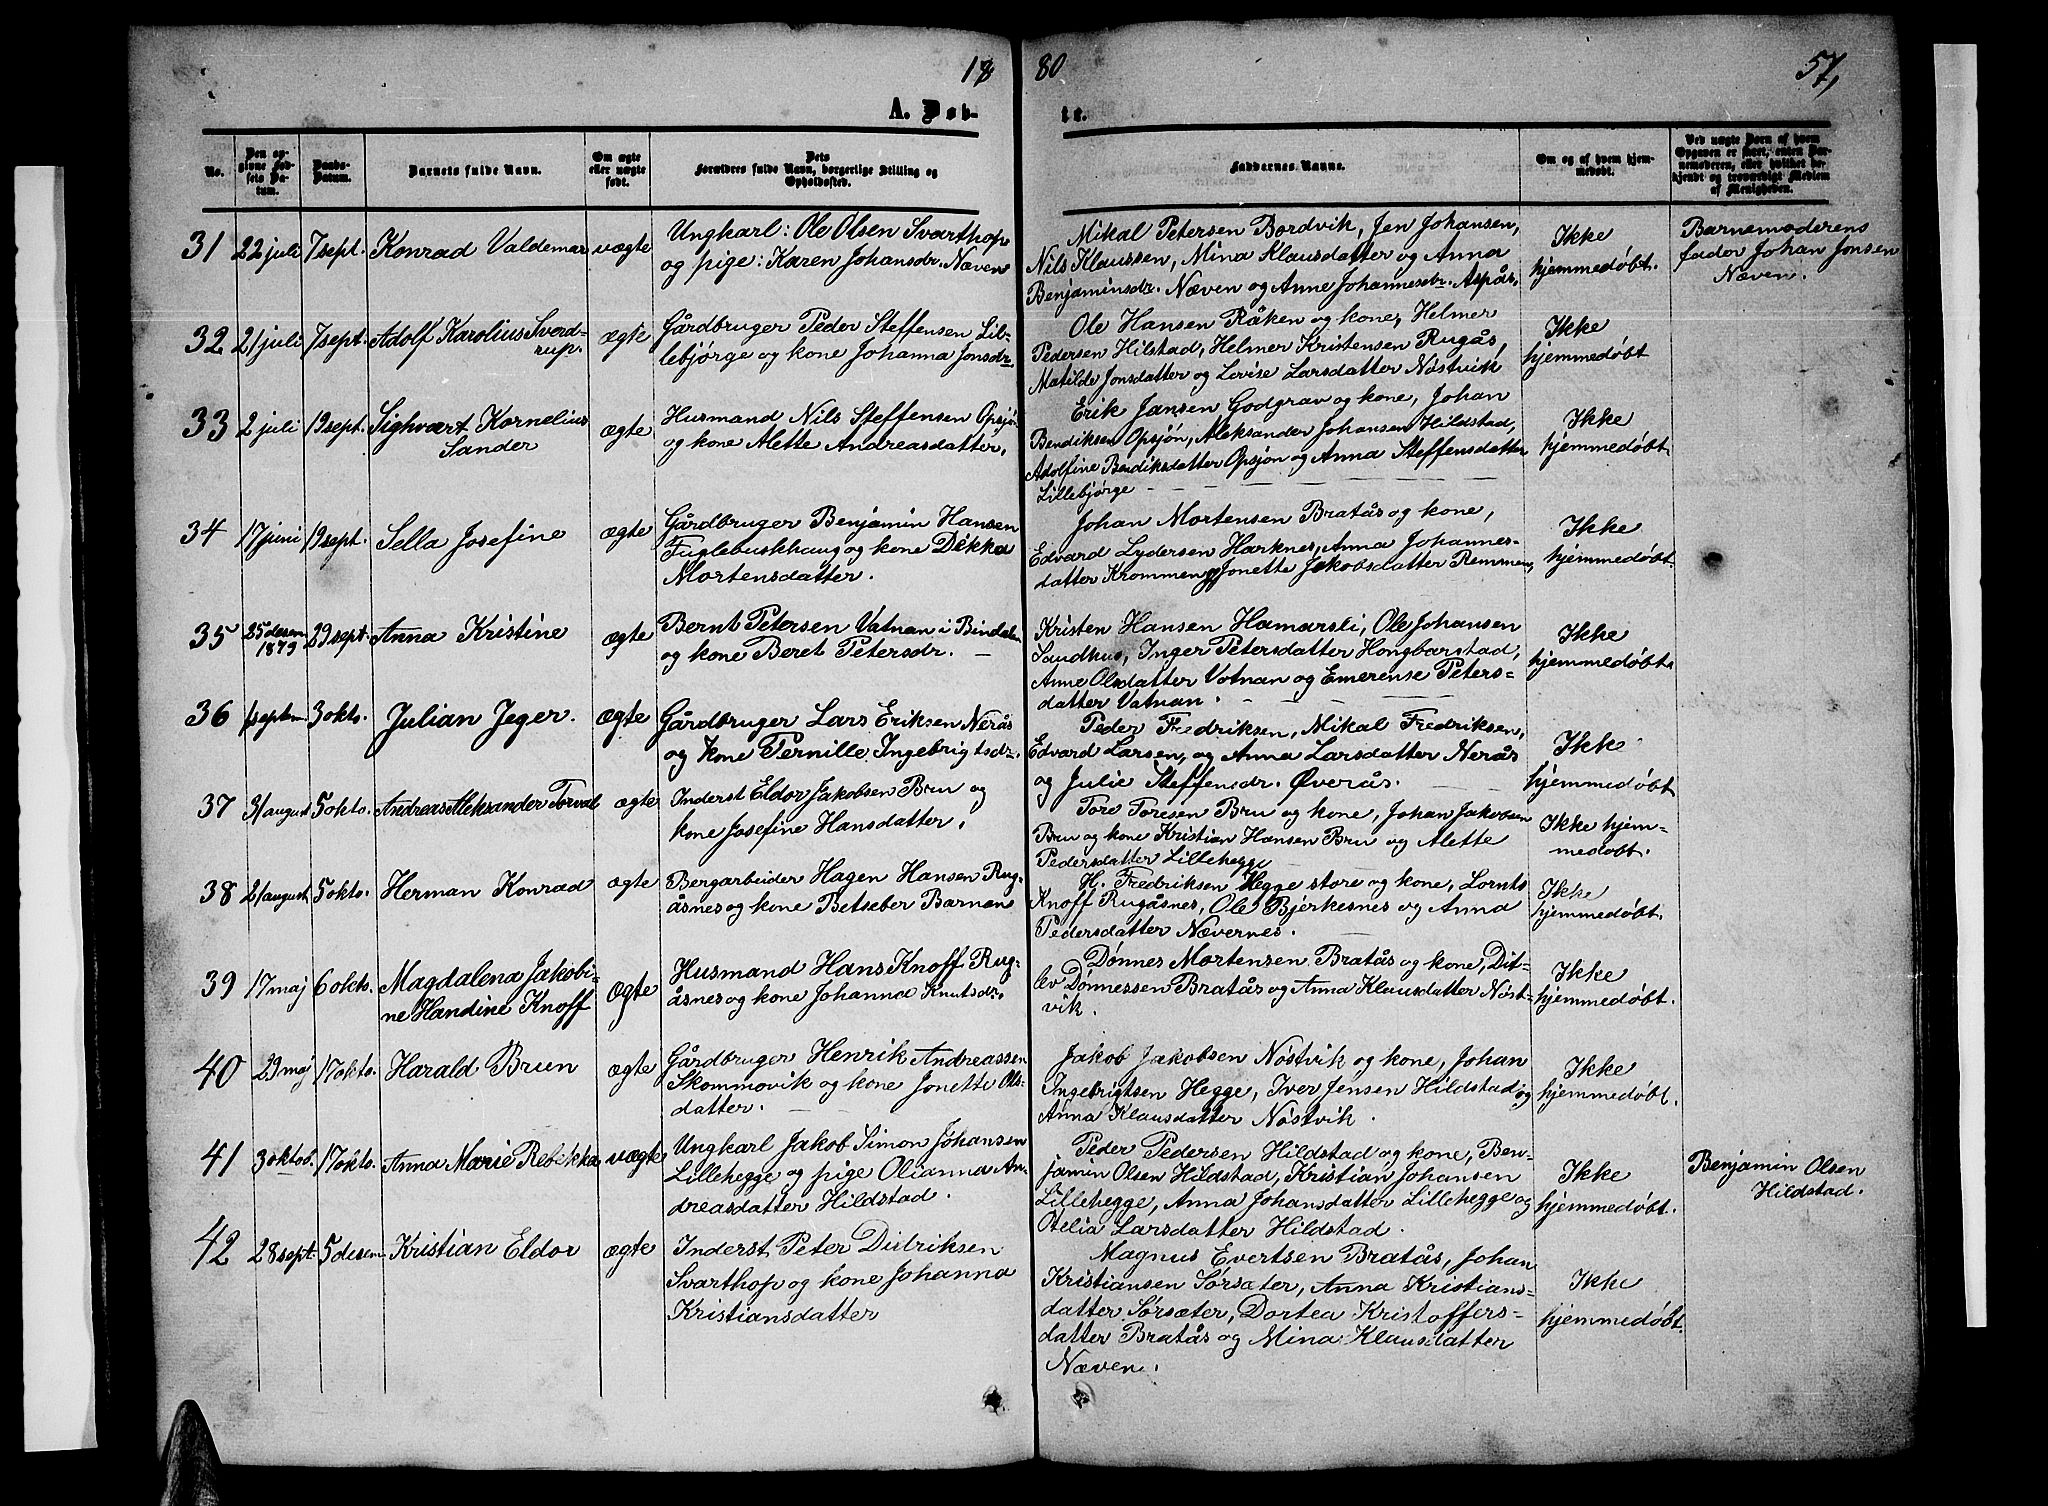 18 80 57,
A. Døb- te.
No.
Den opgivne Fødsels Datum.
Daabs-Datum.
Barnets fulde Navn.
Om ægte eller uægte født.
Dets Forældres fulde Navn, borgerlige Stilling og Opholdssted.
Faddernes Navne.
Om og af hvem hjemmedøbt.
Ved uægte Børn af hvem Opgaven er skeet, enten Barnemoderen, eller hvilket bekjendt og troværdigt Medlem af Menigheden.
31 22 juli 7 sept. Konrad Valdemar uægte
Ungkarl: Ole Olsen Svarthop
og pige: Karen Johansdr. Næven
Mikal Petersen Bordvik, Jen Johansen,
Nils Klaussen, Mina Klausdatter og Anna
Benjaminsdr. Næven og Anne Johannesdr. Aspås,
Ikke
hjemmedøbt.
Barnemoderens
fader Johan Jonsen
Næven.
32 21 juli 7 sept. Adolf Karolius Sverd-
rup. ægte
Gårdbruger Peder Steffensen Lil-
lebjørge og kone Johanna Jonsdr.
Ole Hansen Råken og kone, Helmer
Pedersen Hilstad, Helmer Kristensen Rugås,
Matilde Jonsdatter og Lovise Larsdatter Nøstvik
Ikke
hjemmedøbt
33 2 juli 19 sept. Sighvart Kornelius
Sander ægte
Husmand Nils Steffensen Opsjø
og kone Alette Andreasdatter,
Erik Jansen Godgrav og kone, Johan
Bendiksen Opsjøn, Aleksander Johansen Hildstad,
Adolfine Bendiksdatter Opsjøn og Anna Steffensdatter
Lillebjørge
Ikke
hjemmedøbt
34 17 juni 19 sept. Sella Josefine ægte
Gårdbruger Benjamin Hansen
Fuglebuskhaug og kone Dikka
Mortensdatter.
Johan Mortensen Bratås og kone,
Edvard Lydersen Harknes, Anna Johannes-
datter Krommen og Jonette Jakobsdatter Remmen,
Ikke
hjemmedøbt
35 25 desem
1879 29 sept. Anna Kristine ægte
Bernt Petersen Vatnan i Bindalen
og kone Beret Petersdr.
Kristen Hansen Hamarsli, Ole Johansen
Sandhus, Inger Petersdatter Hongbarstad,
Anne Olsdatter Votnan og Emerense Peters-
datter Vatnan.
Ikke
hjemmedøbt
36 1 septem. 3 okto. Julian Jeger. ægte
Gårdbruger Lars Eriksen Nerås
og kone Pernille Ingebrigtsdr.
Peder Fredriksen, Mikal Fredriksen,
Edvard Larsen, og Anna Larsdatter Nerås
og Julie Steffensdr. Øverås.
Ikke
hjemmedøbt
37 31 august 5 okto. Andreas Aleksander Torval ægte
Inderst Eldor Jakobsen Bru og
kone Josefine Hansdatter.
Tore Toresen Bru og kone, Johan Jakobsen
Bru og kone Kristian Hansen Bru og Alette
Pedersdatter Lillehegge
Ikke hjem-
medøbt.
38 21 august 5 okto. Herman Konrad ægte
Bergarbeider Hagen Hansen Rug-
åsnes og kone Betseber Barnans
H. Fredriksen Hegge store og kone, Lornts
Knoff Rugåsnes, Ole Bjerkesnes og Anna
Pedersdatter Nævernes.
Ikke
hjemmedøbt.
39 17 maj 6 okto. Magdalena Jakobi-
ne Handine Knoff ægte
Husmand Hans Knoff Rug-
åsnes og kone Johanna Knutsdr.
Dønnes Mortensen Bratås og kone, Dit-
lev Dønnessen Bratås og Anna Klausdatter Nøst-
vik.
Ikke
hjemmedøbt.
40 29 maj 17 okto. Harald Brun ægte
Gårdbruger Henrik Andreassen
Skommovik og kone Jonette Ols-
datter.
Jakob Jakobsen Nøstvik og kone, Johan
Ingebrigtsen Hegge, Iver Jensen Hildstad og
Anna Klausdatter Nøstvik.
Ikke
hjemmedøbt.
41 3 oktob. 17 okto. Anna Marie Rebekka uægte
Ungkarl Jakob Simon Johansen
Lillehegge og pige Olianna An-
dreasdatter Hildstad.
Peder Pedersen Hildstad og kone, Ben-
jamin Olsen Hildstad, Kristian Johansen
Lillehegge, Anna Johansdatter Lillehegge og
Otelia Larsdatter Hildstad.
Ikke
hjemmedøbt.
Benjamin Olsen
Hildstad.
42 28 sept. 5 desem Kristian Eldor ægte
Inderst Peter Didriksen
Svarthop og kone Johanna
Kristiansdatter
Magnus Evertsen Bratås, Johan
Kristiansen Sørsæter, Anna Kristians-
datter Sørsæter, Dortea Kristoffers-
datter Bratås og Mina Klausdatter
Næven.
Ikke
hjemmedøbt.